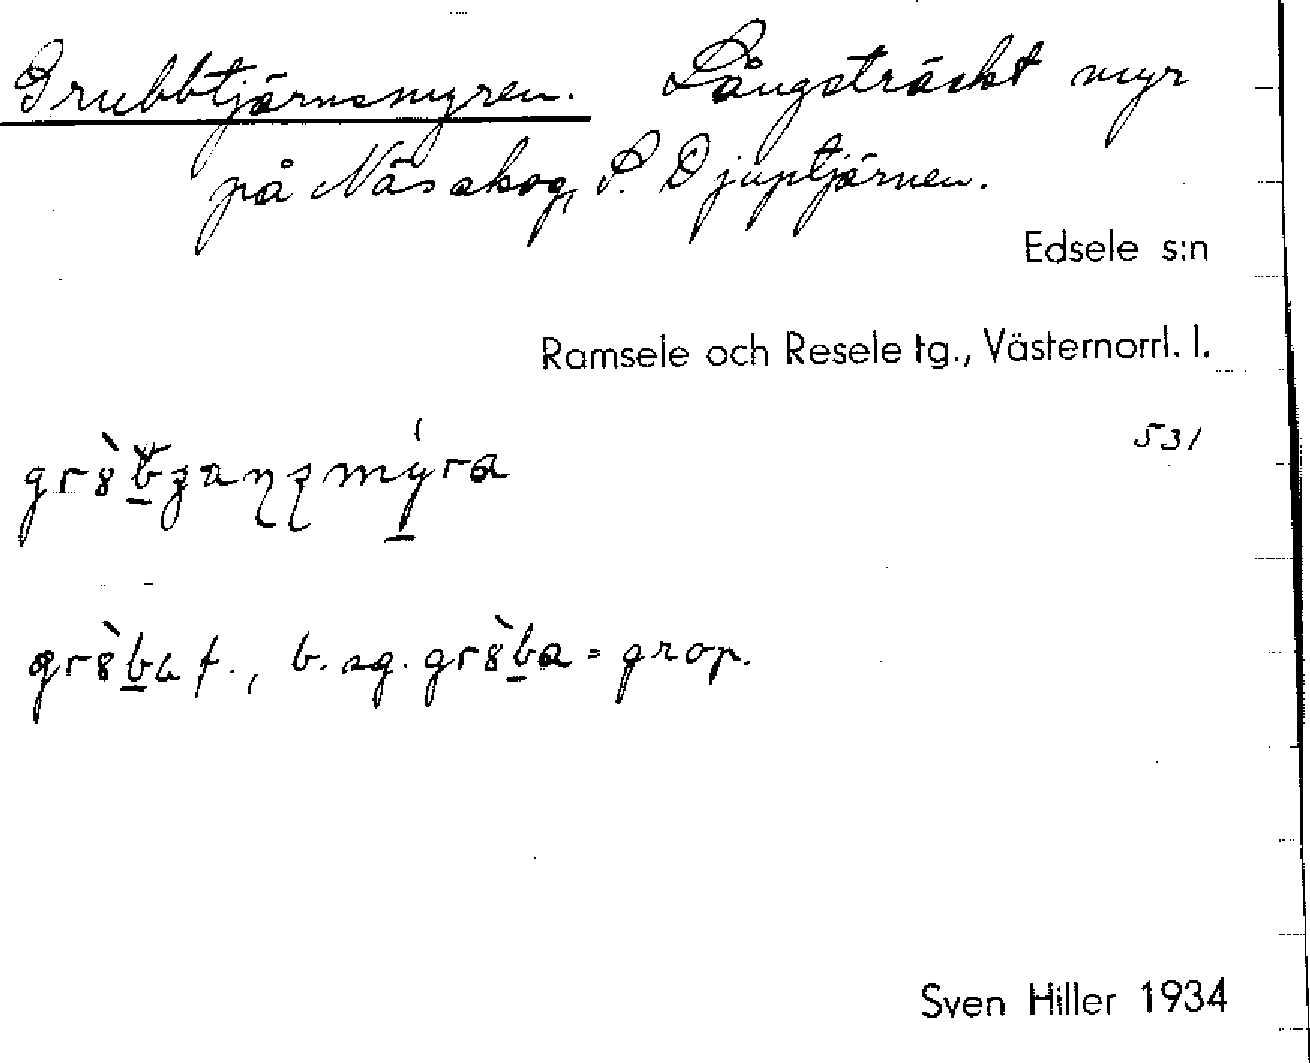 Grubbtjärnsmyren. Långsträckt myr
på Näs skog, S. Djuptjärnen.
Edsele s:n
Ramsele och Resele tg., Västernorrl. l.
531
f., b. sg. = grop.
Sven Hiller 1934